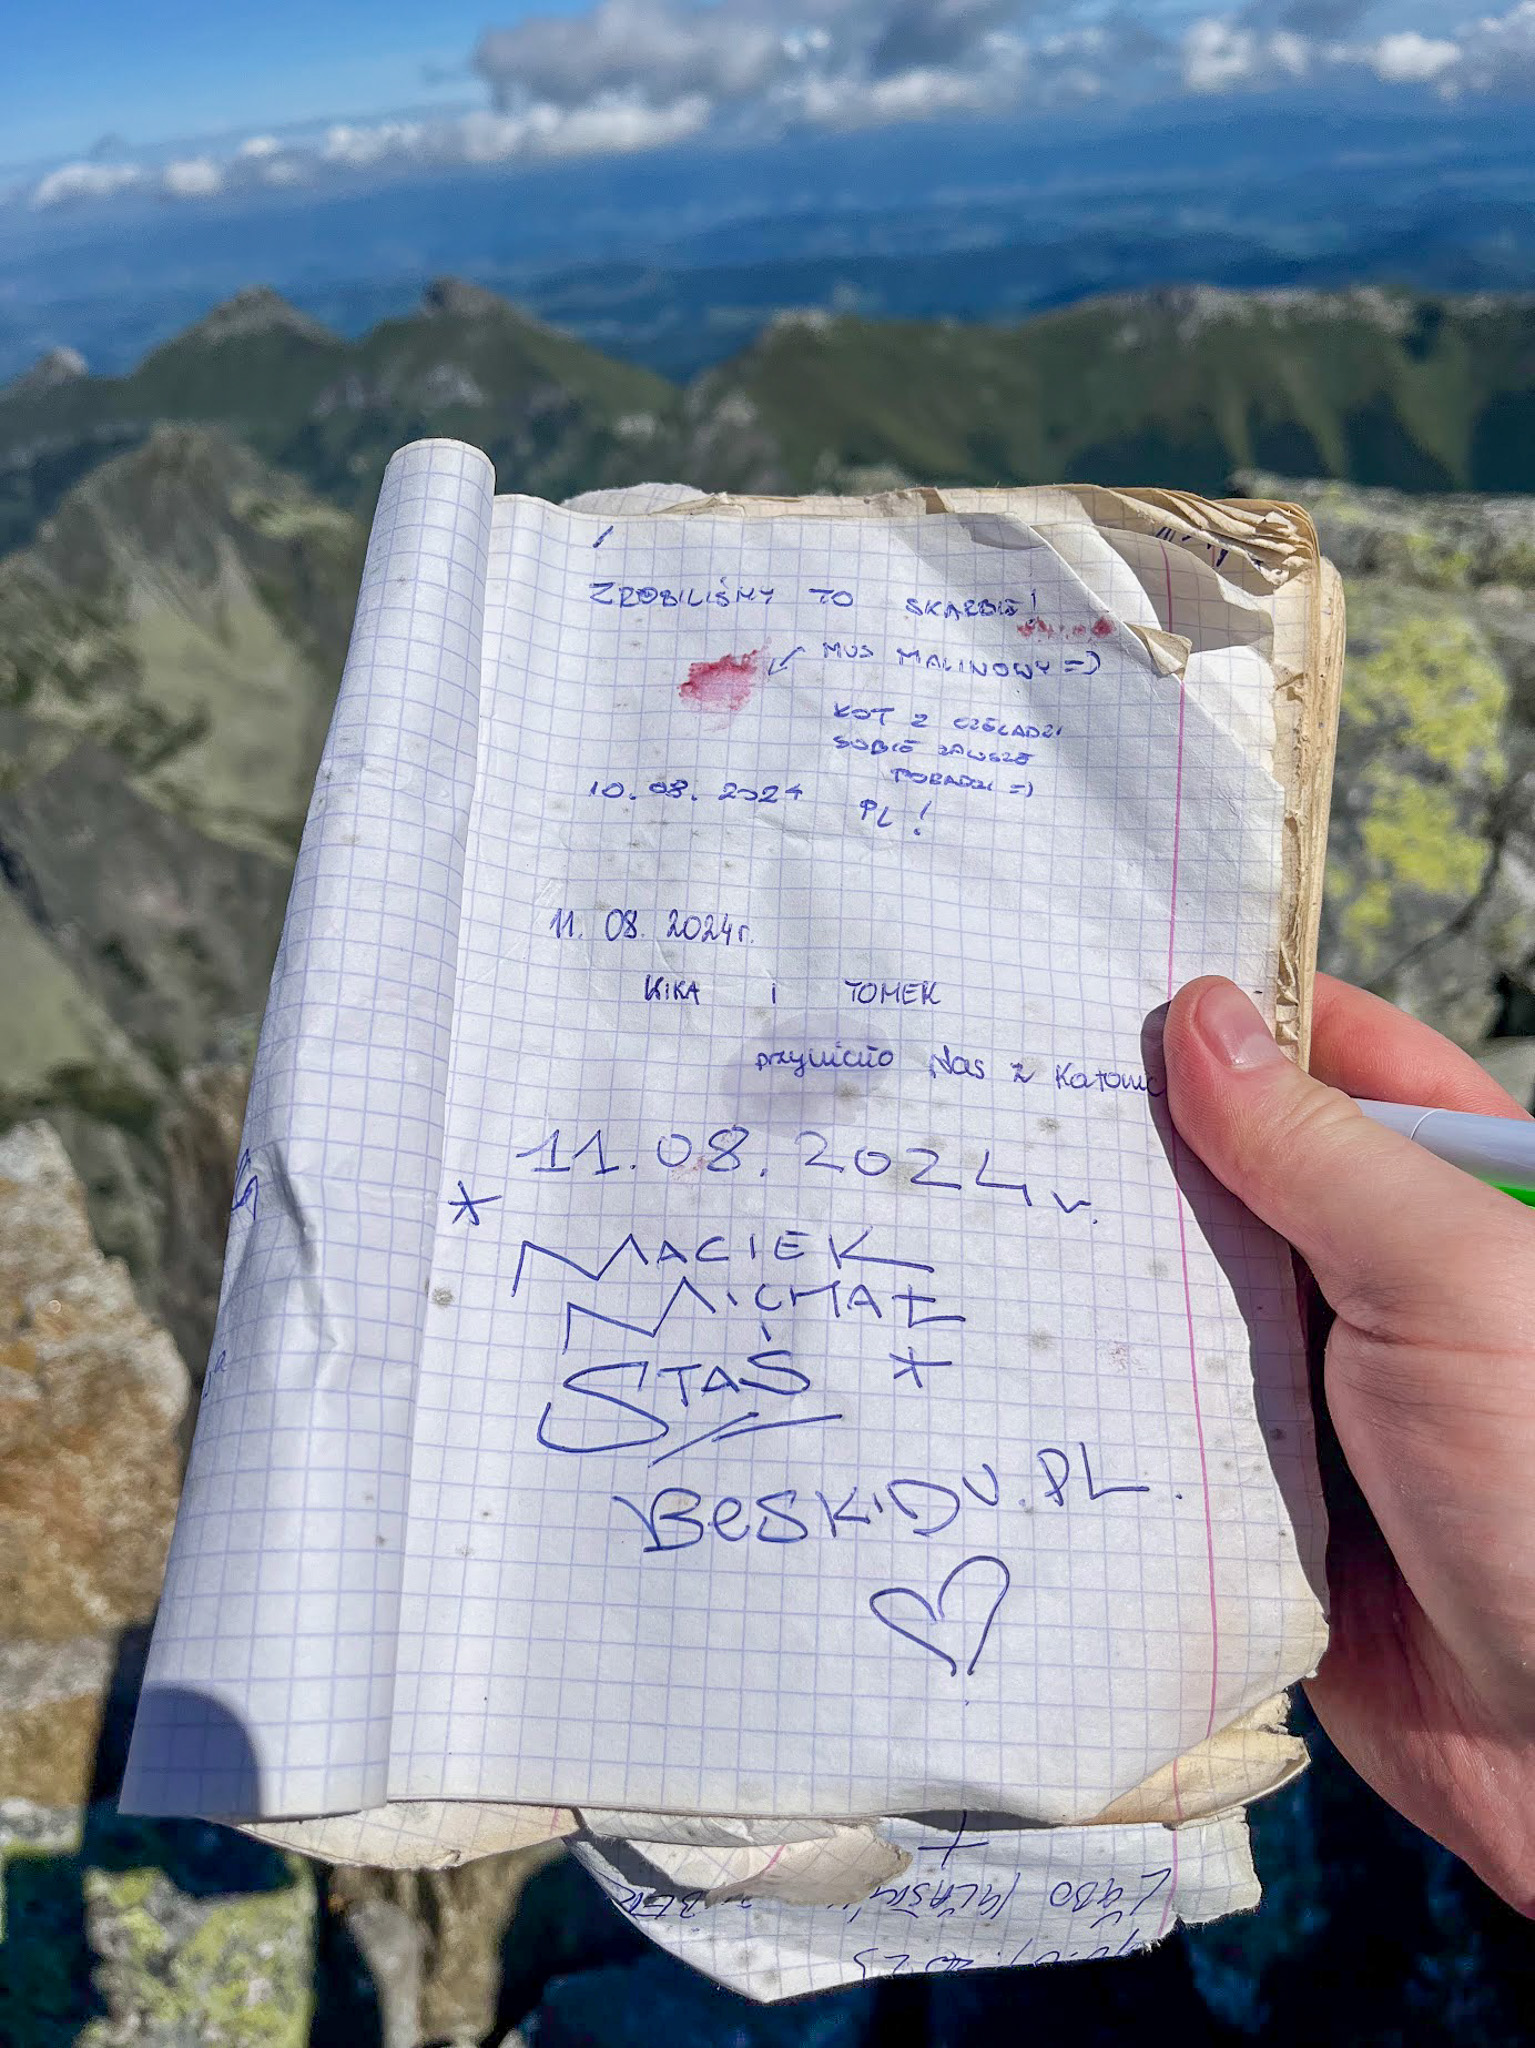 ZROBILIŚMY TO SKARBIE!
MUS MALINOWY =)
KOT Z CZELADZI
SOBIE ZAWSZE
PORADZI =)
10.08.2024 PL!
11. 08. 2024r.
KIKA i TOMEK
przywiało Nas z Katowic
11.08.2024r.
* MACIEK
MICHAŁ
STAŚ *
BESKIDU.PL.